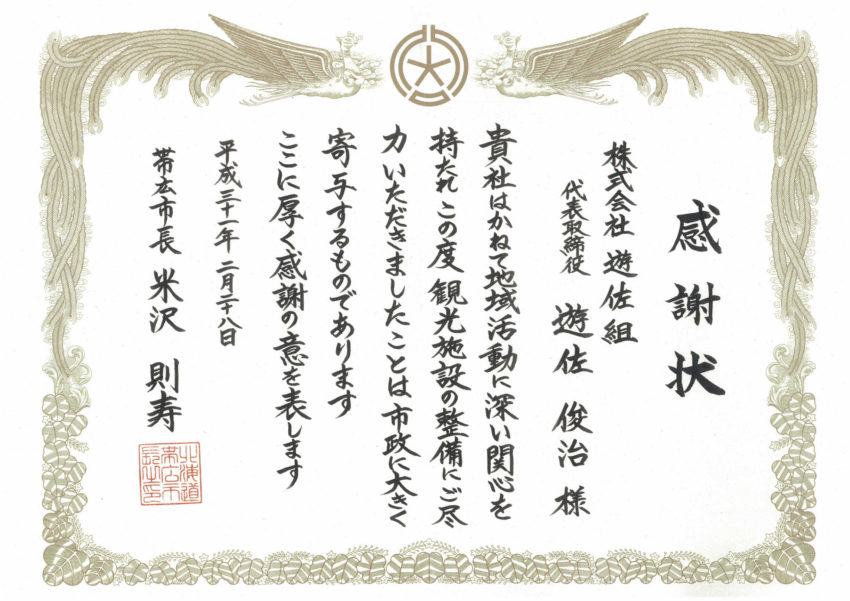 感謝状
株式会社 遊佐組
代表取締役 遊佐 俊治 様
貴社はかねて地域活動に深い関心を
持たれ この度 観光施設の整備にご尽
力いただきましたことは 市政に大きく
寄与するものであります
ここに厚く感謝の意を表します
平成三十一年 二月二十八日
帯広市長 米沢 則寿
北海道
帯広市
長之印